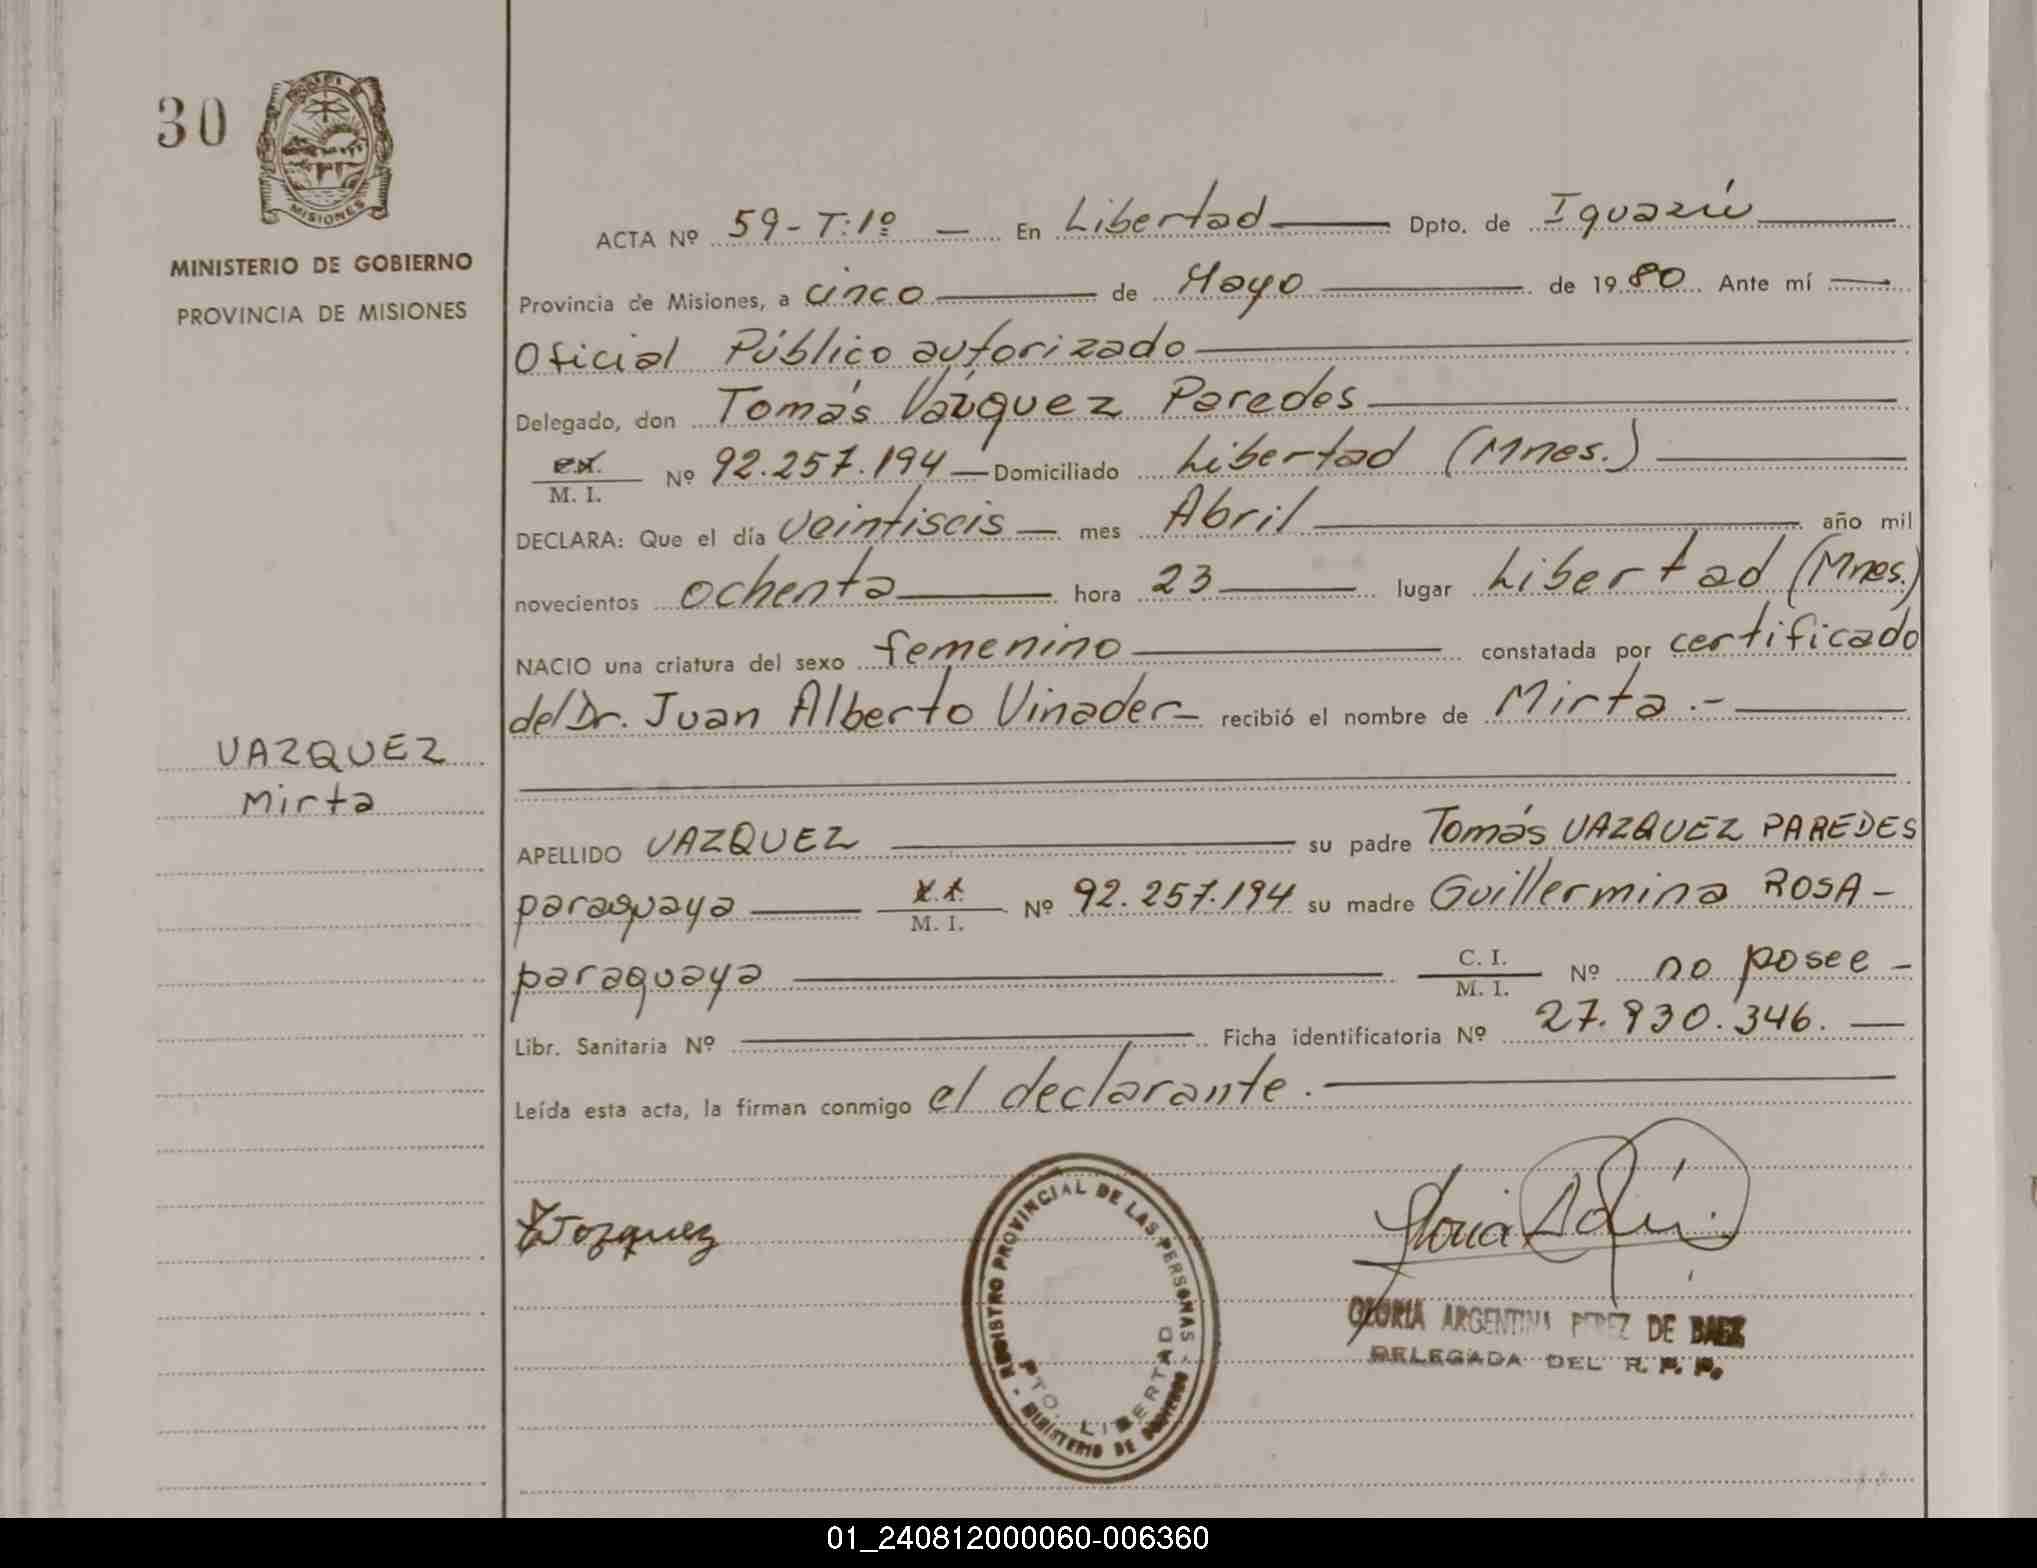 30
MISIONES
MINISTERIO DE GOBIERNO
PROVINCIA DE MISIONES
ACTA Nº 59-T:1º - En Libertad Dpto. de Iguazú
Provincia de Misiones, a cinco de Mayo de 1980 Ante mí
Oficial Público autorizado
Delegado, don Tomás Vázquez Paredes
M. I. Nº 92.257.194 - Domiciliado Libertad (Mnes.)
DECLARA: Que el día veintiseis - mes Abril año mil
novecientos ochenta hora 23 lugar Libertad (Mnes.)
NACIO una criatura del sexo femenino constatada por certificado
del Dr. Juan Alberto Vinader - recibió el nombre de Mirta.-
VAZQUEZ
Mirta
APELLIDO VAZQUEZ su padre Tomás VAZQUEZ PAREDES
paraguaya M. I. Nº 92.257.194 su madre Guillermina ROSA -
paraguaya C. I. M. I. Nº no posee -
Libr. Sanitaria Nº Ficha identificatoria Nº 27.930.346.
Leída esta acta, la firman conmigo el declarante.
Vazquez
REGISTRO PROVINCIAL DE LAS PERSONAS - MINISTERIO DE GOBIERNO -
PTO. LIBERTAD
GLORIA ARGENTINA PEREZ DE BAEZ
DELEGADA DEL R. P. P.
01_240812000060-006360